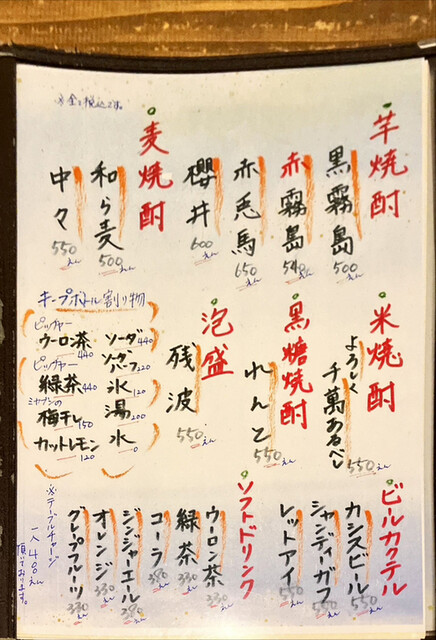 ※全て税込です。
芋焼酎
黒霧島 500えん
赤霧島 540えん
赤兎馬 650えん
櫻井 600えん
麦焼酎
和ら麦 500えん
中々 550えん
米焼酎
よろしく千萬あるべし 550えん
黒糖焼酎
れんと 550えん
泡盛
残波 550えん
キープボトル割り物
ピッチャー
ウーロン茶 440
ソーダ 440
ピッチャー
緑茶 440
氷 120
ミヤブンの
梅干し 150
湯 200
カットレモン 120
水 0
ビールカクテル
カシスビール 550えん
シャンディーガフ 550えん
レッドアイ 550えん
ソフトドリンク
ウーロン茶 330えん
緑茶 330えん
コーラ 380えん
ジンジャーエール 380えん
オレンジ 330えん
グレープフルーツ 330えん
※テーブルチャージ
一人480えん
頂いております。